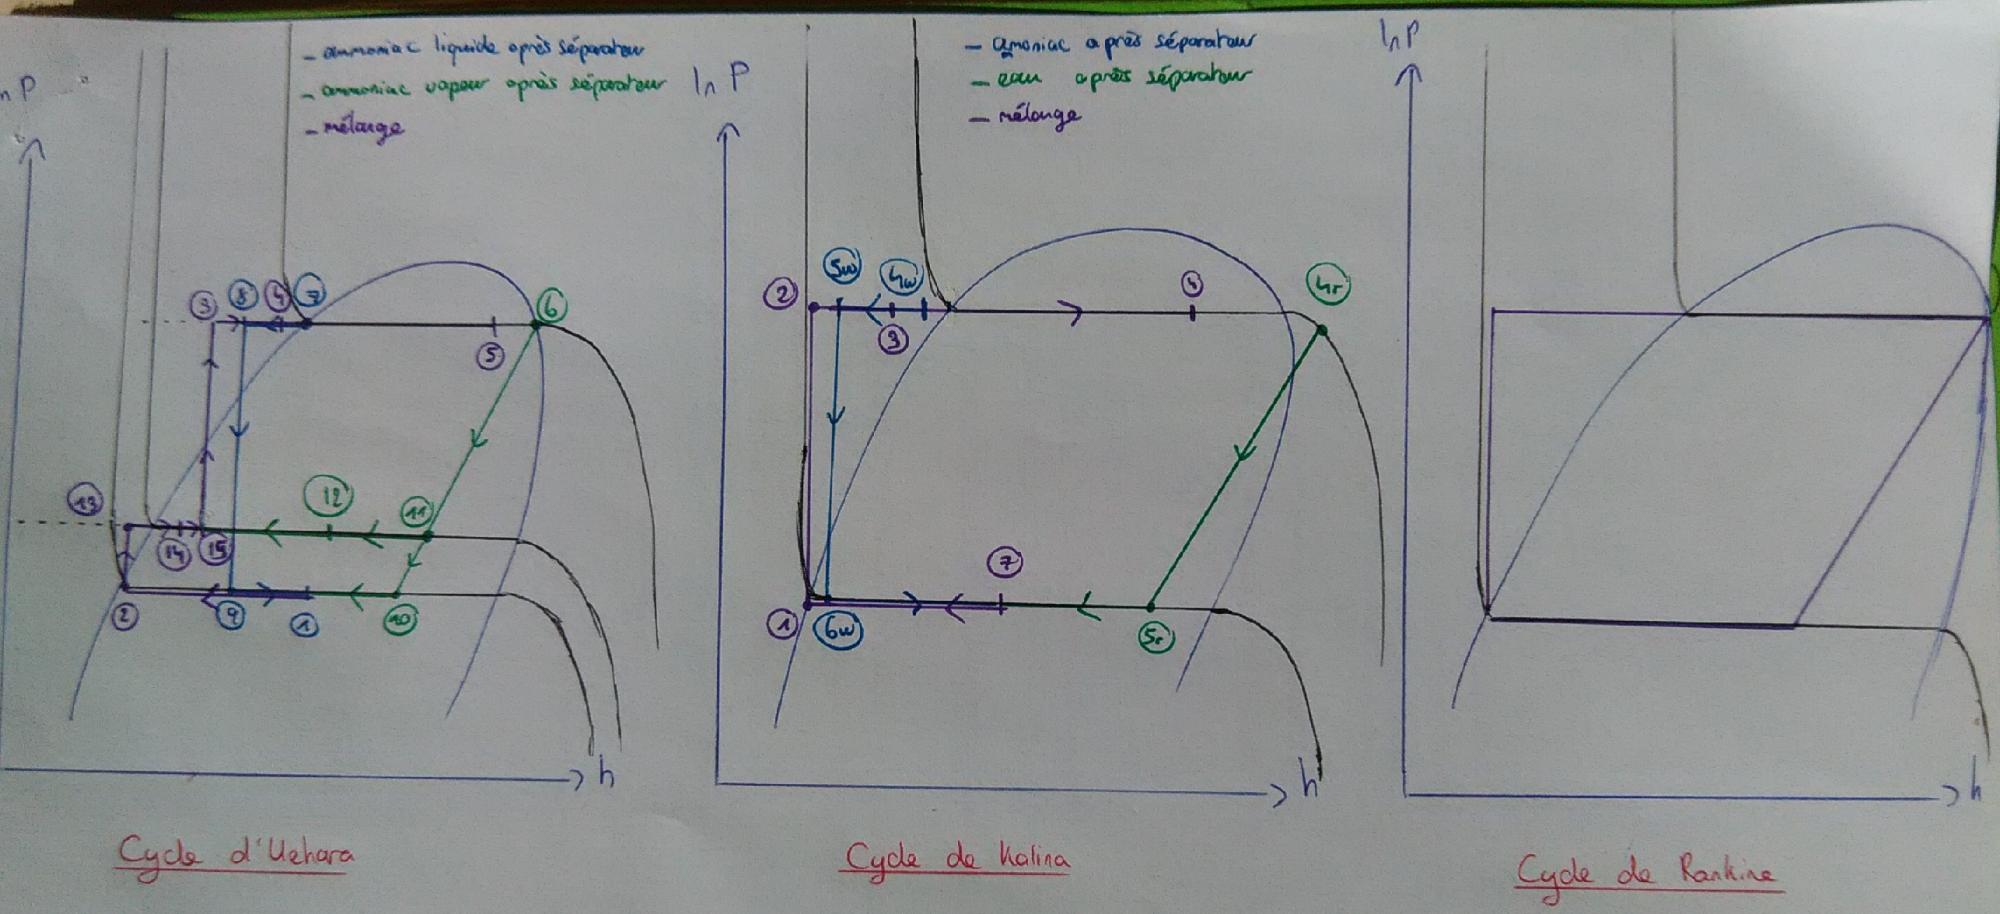 n P
- ammoniac liquide après séparateur
- ammoniac vapeur après séparateur
- mélange
3
8
4
7
6
5
13
12
11
14
15
2
9
1
10
h
Cycle d'Uehara
ln P
- amoniac après séparateur
- eau après séparateur
- mélange
2
5w
4w
3
4
4r
7
1
6w
5r
h
Cycle de Kalina
ln P
h
Cycle de Rankine